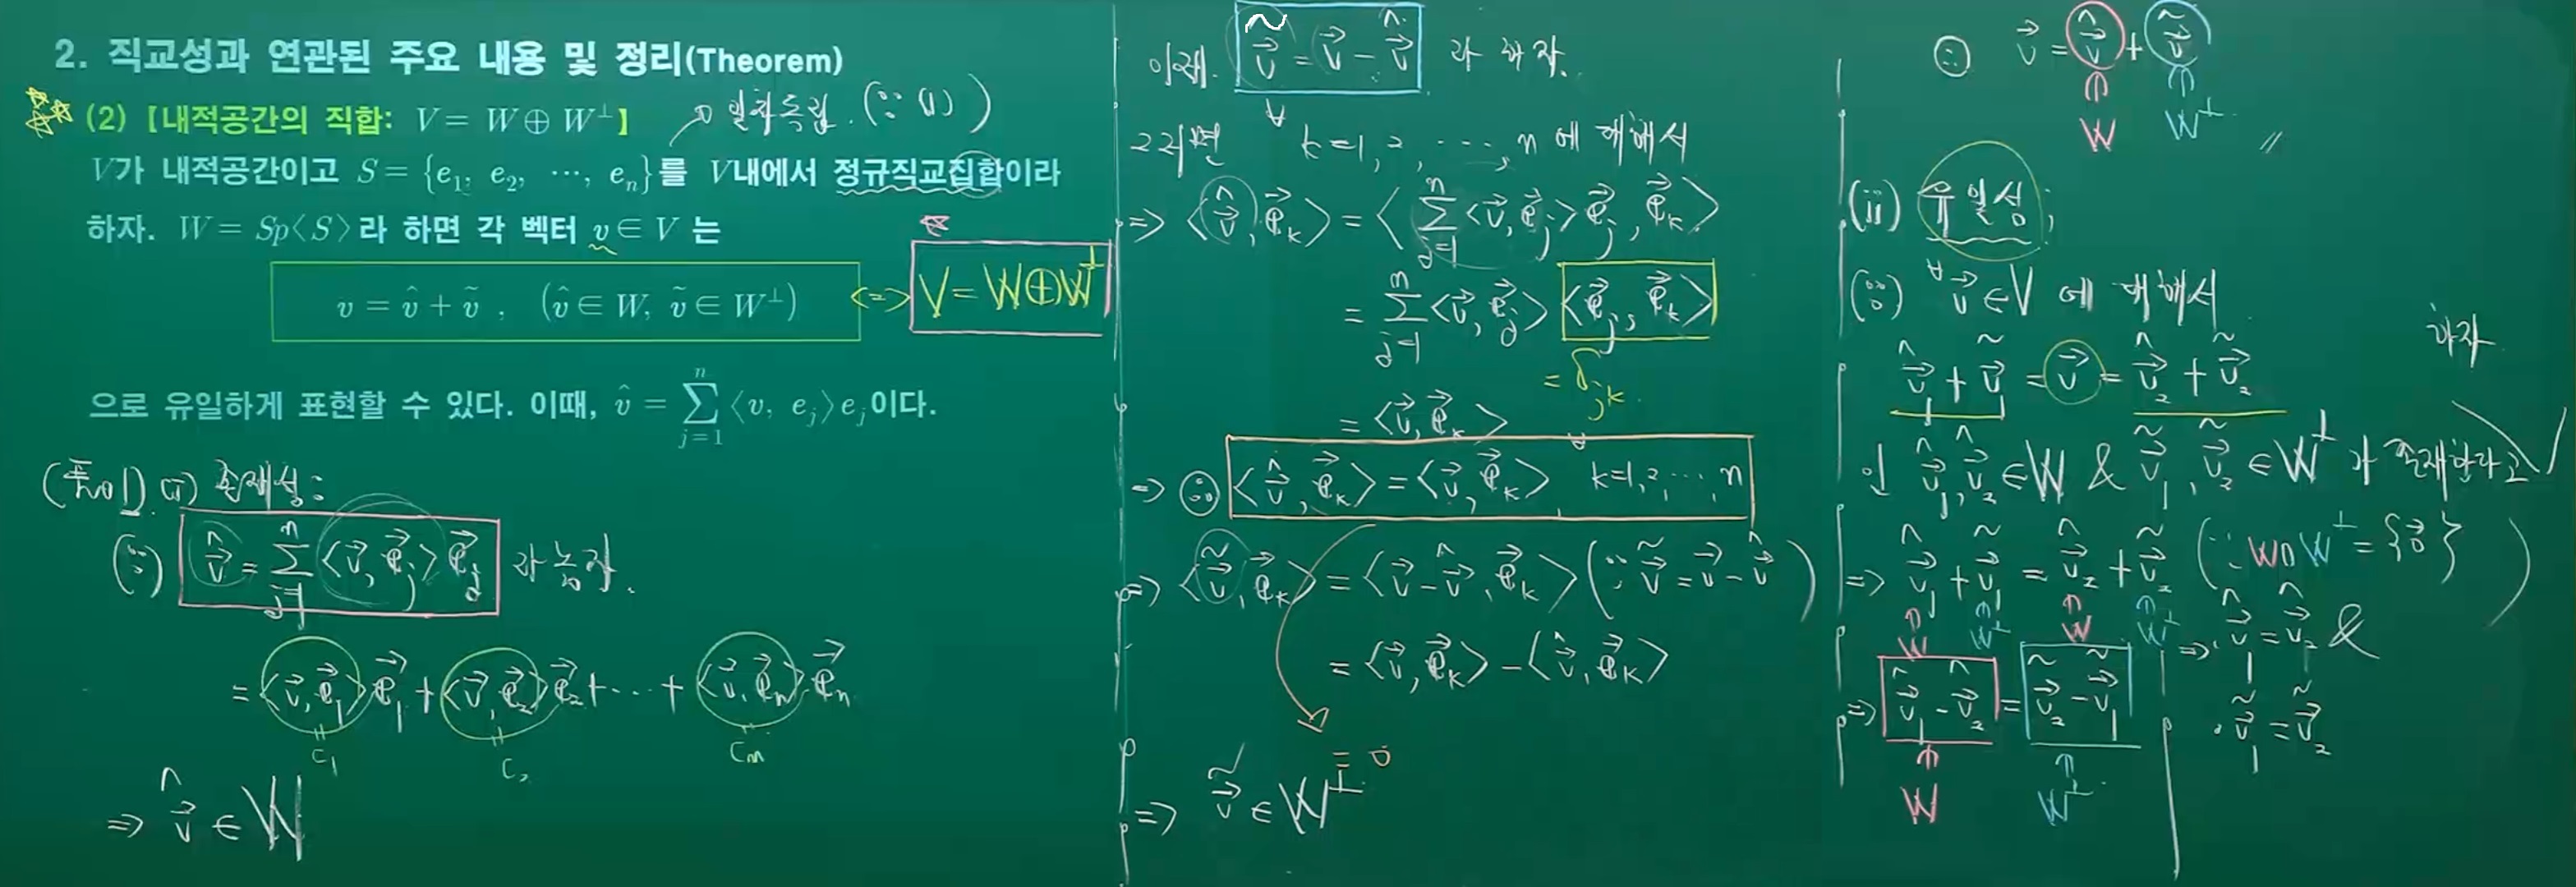 2. 직교성과 연관된 주요 내용 및 정리(Theorem)
(2) [내적공간의 직합: V = W ⊕ W^⊥] → 일차독립. (∵ (1))
V가 내적공간이고 S = {e_1, e_2, ⋯, e_n}를 V내에서 정규직교집합이라
하자. W = Sp⟨S⟩라 하면 각 벡터 v ∈ V 는
v = v̂ + ṽ , (v̂ ∈ W, ṽ ∈ W^⊥) <=> V = W ⊕ W^⊥
으로 유일하게 표현할 수 있다. 이때, v̂ = ∑_{j=1}^{n} ⟨v, e_j⟩e_j이다.
(i) 존재성:
(∵) v̂ = ∑_{j=1}^{n} ⟨v, e_j⟩ e_j 라 놓자.
= ⟨v, e_1⟩ e_1 + ⟨v, e_2⟩ e_2 + ⋯ + ⟨v, e_n⟩ e_n
c_1 c_2 c_n
=> v̂ ∈ W
이제. ṽ = v - v̂ 라 하자.
그러면 ∀ k=1, 2, ⋯, n 에 대해서
=> ⟨v̂, e_k⟩ = ⟨ ∑_{j=1}^{n} ⟨v, e_j⟩ e_j, e_k ⟩
= ∑_{j=1}^{n} ⟨v, e_j⟩ ⟨e_j, e_k⟩
= δ_{jk}
= ⟨v, e_k⟩
=> ∴ ⟨v̂, e_k⟩ = ⟨v, e_k⟩, k=1, 2, ⋯, n
=> ⟨ṽ, e_k⟩ = ⟨v - v̂, e_k⟩ (∵ ṽ = v - v̂)
= ⟨v, e_k⟩ - ⟨v̂, e_k⟩
= 0
=> ṽ ∈ W^⊥
∴ v = v̂ + ṽ
W W^⊥ //
(ii) 유일성;
(∵) ∀v ∈ V 에 대해서
v̂_1 + ṽ_1 = v = v̂_2 + ṽ_2
인 v̂_1, v̂_2 ∈ W & ṽ_1, ṽ_2 ∈ W^⊥ 가 존재한다고 하자
=> v̂_1 + ṽ_1 = v̂_2 + ṽ_2 (∵ W ∩ W^⊥ = {0})
W W^⊥ W W^⊥
=> v̂_1 - v̂_2 = ṽ_2 - ṽ_1
W W^⊥
=> v̂_1 = v̂_2 &
ṽ_1 = ṽ_2